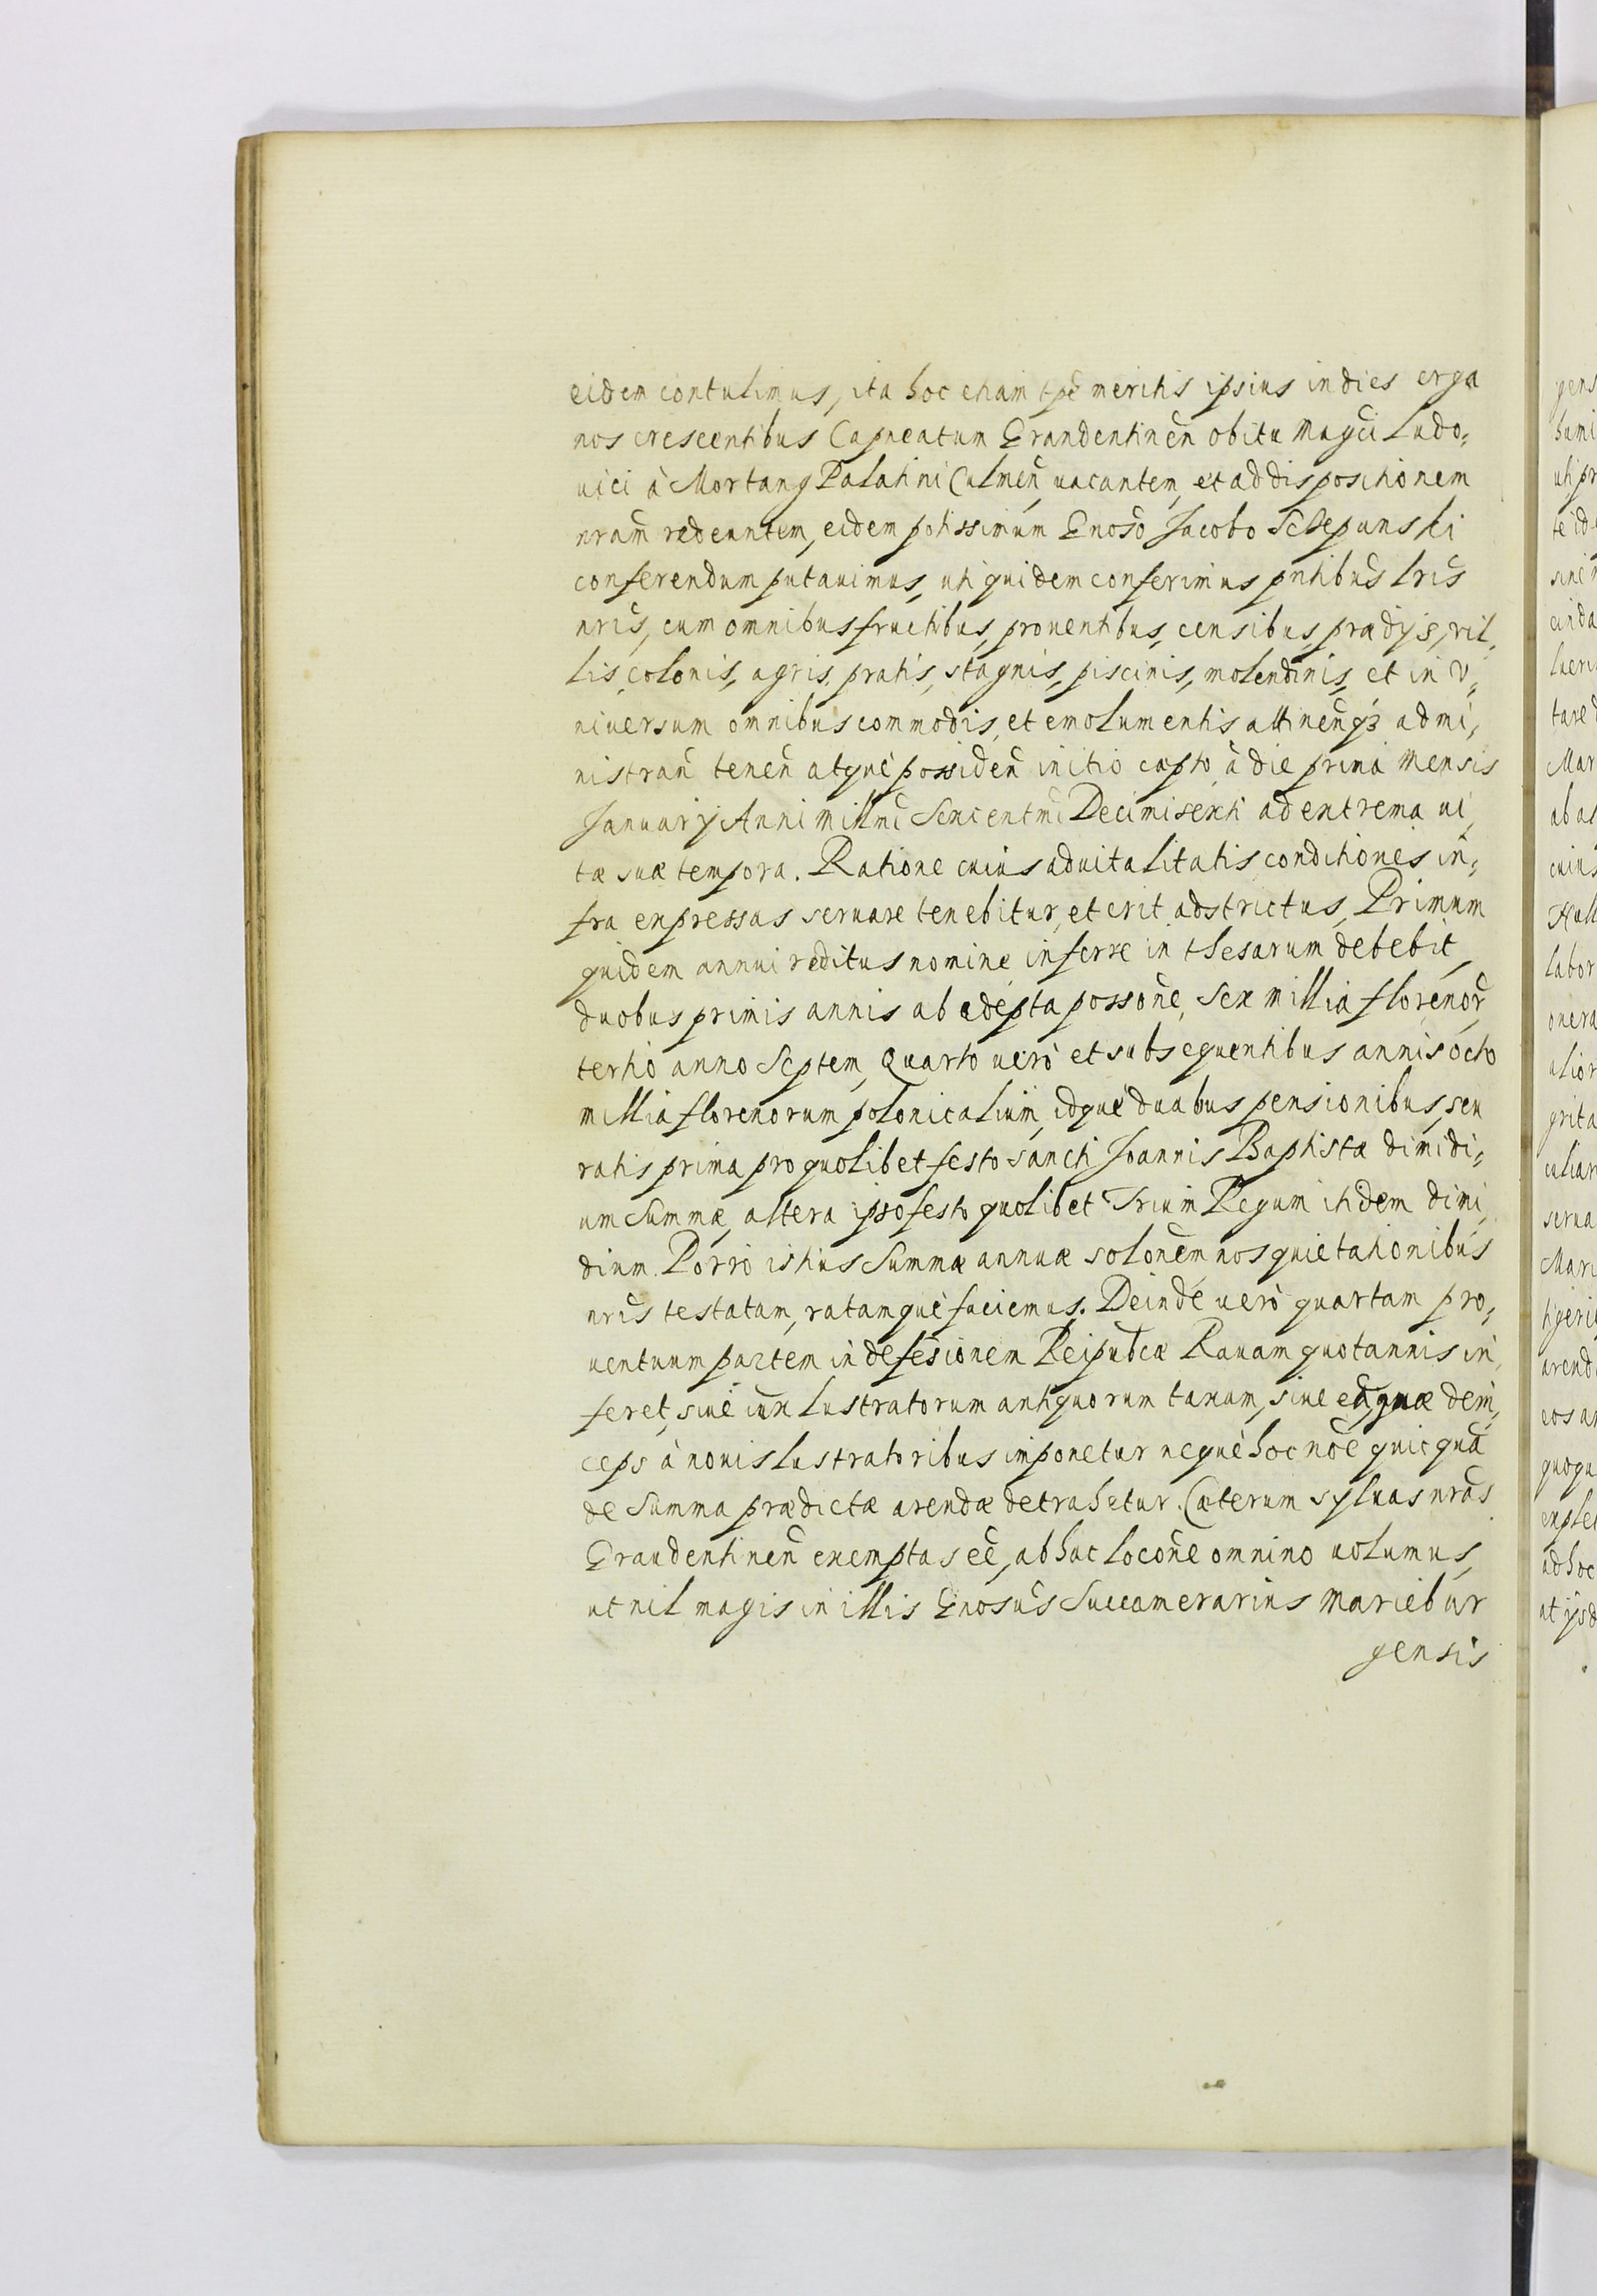 eidem contulimus, ita hoc etiam tpe meritis ipsius in dies erga
nos crescentibus Capneatum Graudentinen̄ obitu Magci Ludo=
uici à Mortang Palatini Culmen̄ uacantem, et ad dispositionem
nram̄ redeuntem, eidem potissimum Gnoso Jacobo Sczepanski
conferendum putauimus, uti quidem conferimus pntibus lris
nris, cum omnibus fructibus, prouentibus, censibus, prædijs, vil=
lis, colonis, agris, pratis, stagnis, piscinis, molendinis, et in V=
niuersum omnibus commodis, et emolumentis attinen̄qꝫ admi=
nistran̄ tenen̄ atquè possiden̄ initio cæpto, à die prima Mensis
Januarij Anni millmi Sexcentmi Decimisexti ad extrema ui=
tæ suæ tempora. Ratione cuius aduitalitatis conditiones in=
fra expressas seruare tenebitur, et erit adstrictus, Primum
quidem annui reditus nomine inferre in thesarum debebit,
duobus primis annis ab adepta possone, Sex millia florenor̄,
tertio anno Septem, Quarto uerò et subsequentibus annis octo
millia florenorum polonicalium, idquè duabus pensionibus, seu
ratis prima pro quolibet festo sancti Joannis Baptistæ dimidi=
um Summæ, altera ipso festo quolibet Trium Regum itidem dimi=
dium. Porrò istius Summæ annuæ solonem nos quietationibus
nris testatam, ratamquè faciemus. Deindè uerò quartam pro=
uentuum partem in defēsionem Reipublcæ Rauam quotannis in=
feret, siuè iux̄ Lustratorum antiquorum taxam, siue eā, quæ dein=
ceps à nouis lustratoribus imponetur nequè hoc noē quicquā
de Summa prædictæ arendæ detrahetur. Cæterum syluas nrās
Graudentinen̄ exemptas eē, ab hac locone omnino uolumus,
ut nil magis in illis Gnosus Succamerarius Mariæbur
gensis